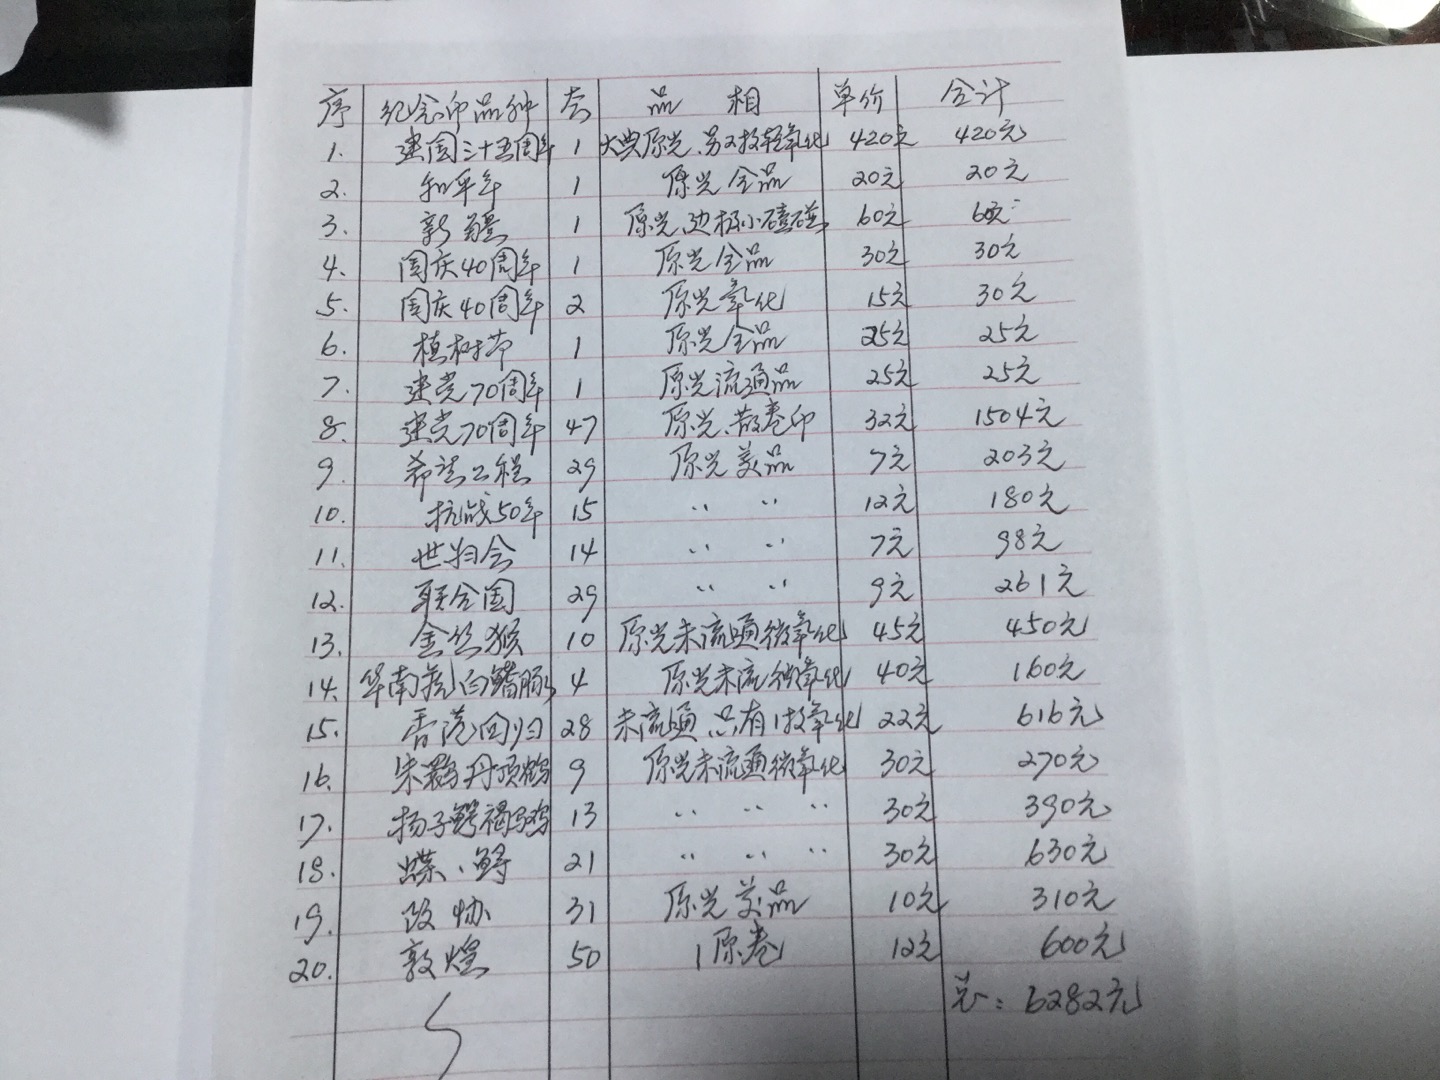 序 纪念印品种 套 品相 单价 合计
1. 建国三十五周年 1 大典原光、另2枚轻氧化 420元 420元
2. 和平年 1 原光全品 20元 20元
3. 新疆 1 原光、边极小磕碰 60元 60元
4. 国庆40周年 1 原光全品 30元 30元
5. 国庆40周年 2 原光氧化 15元 30元
6. 植树节 1 原光全品 25元 25元
7. 建党70周年 1 原光流通品 25元 25元
8. 建党70周年 47 原光、散卷印 32元 1504元
9. 希望工程 29 原光美品 7元 203元
10. 抗战50年 15 〃 〃 12元 180元
11. 世妇会 14 〃 〃 7元 98元
12. 联合国 29 〃 〃 9元 261元
13. 金丝猴 10 原光未流通微氧化 45元 450元
14. 华南虎、白鳍豚 4 原光未流微氧化 40元 160元
15. 香港回归 28 未流通、只有1枚氧化 22元 616元
16. 朱鹮丹顶鹤 9 原光未流通微氧化 30元 270元
17. 扬子鳄褐马鸡 13 〃 〃 〃 30元 390元
18. 蝶、鲟 21 〃 〃 〃 30元 630元
19. 政协 31 原光美品 10元 310元
20. 敦煌 50 1原卷 12元 600元
总：6282元